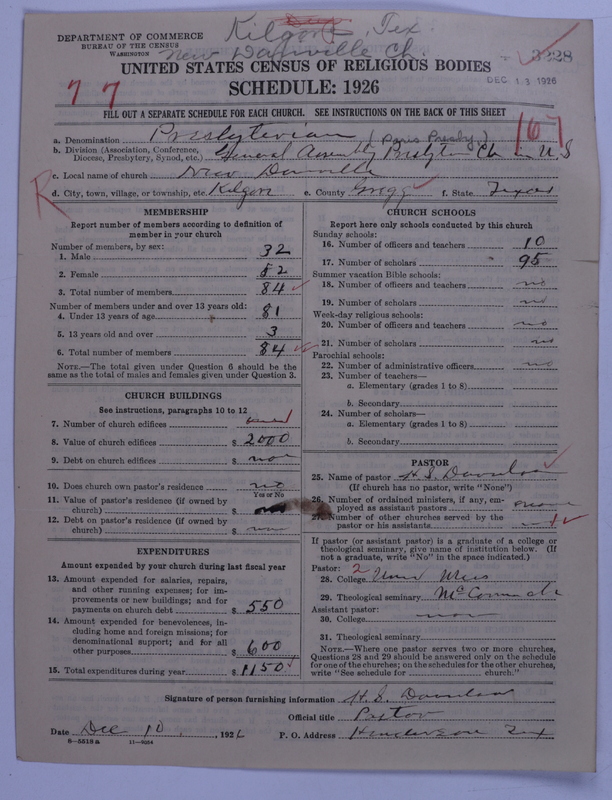 Kilgore, Tex.
DEPARTMENT OF COMMERCE
BUREAU OF THE CENSUS
WASHINGTON
New Danville Ch.
3228
UNITED STATES CENSUS OF RELIGIOUS BODIES
DEC 13 1926
SCHEDULE: 1926
77
FILL OUT A SEPARATE SCHEDULE FOR EACH CHURCH. SEE INSTRUCTIONS ON THE BACK OF THIS SHEET
167
a. Denomination Presbyterian (Paris Presby.)
b. Division (Association, Conference, Diocese, Presbytery, Synod, etc.) General Assembly Presbyterian Ch in U S
R
c. Local name of church New Danville
d. City, town, village, or township, etc. Kilgore e. County Gregg f. State Texas
MEMBERSHIP
Report number of members according to definition of member in your church
Number of members, by sex:
1. Male 32
2. Female 52
3. Total number of members 84
Number of members under and over 13 years old:
4. Under 13 years of age 81
5. 13 years old and over 3
6. Total number of members 84
NOTE.—The total given under Question 6 should be the same as the total of males and females given under Question 3.
CHURCH BUILDINGS
See instructions, paragraphs 10 to 12
7. Number of church edifices 1
8. Value of church edifices $ 2000
9. Debt on church edifices $ none
10. Does church own pastor's residence no
Yes or No
11. Value of pastor's residence (if owned by church) $
12. Debt on pastor's residence (if owned by church) $
EXPENDITURES
Amount expended by your church during last fiscal year
13. Amount expended for salaries, repairs, and other running expenses; for improvements or new buildings; and for payments on church debt $ 550
14. Amount expended for benevolences, including home and foreign missions; for denominational support; and for all other purposes $ 600
15. Total expenditures during year $ 1150
CHURCH SCHOOLS
Report here only schools conducted by this church
Sunday schools:
16. Number of officers and teachers 10
17. Number of scholars 95
Summer vacation Bible schools:
18. Number of officers and teachers no
19. Number of scholars no
Week-day religious schools:
20. Number of officers and teachers no
21. Number of scholars no
Parochial schools:
22. Number of administrative officers no
23. Number of teachers—
a. Elementary (grades 1 to 8)
b. Secondary
24. Number of scholars—
a. Elementary (grades 1 to 8)
b. Secondary
PASTOR
25. Name of pastor H. S.
(If church has no pastor, write "None")
26. Number of ordained ministers, if any, employed as assistant pastors
27. Number of other churches served by the pastor or his assistants
If pastor (or assistant pastor) is a graduate of a college or theological seminary, give name of institution below. (If not a graduate, write "No" in the space indicated.)
Pastor: 2
28. College
29. Theological seminary McCormick
Assistant pastor:
30. College none
31. Theological seminary
NOTE.—Where one pastor serves two or more churches, Questions 28 and 29 should be answered only on the schedule for one of the churches; on the schedules for the other churches, write "See schedule for church."
Signature of person furnishing information H. S.
Official title Pastor
Date Dec 10, 1926
P. O. Address Henderson Tex
6—5518a 11—9264